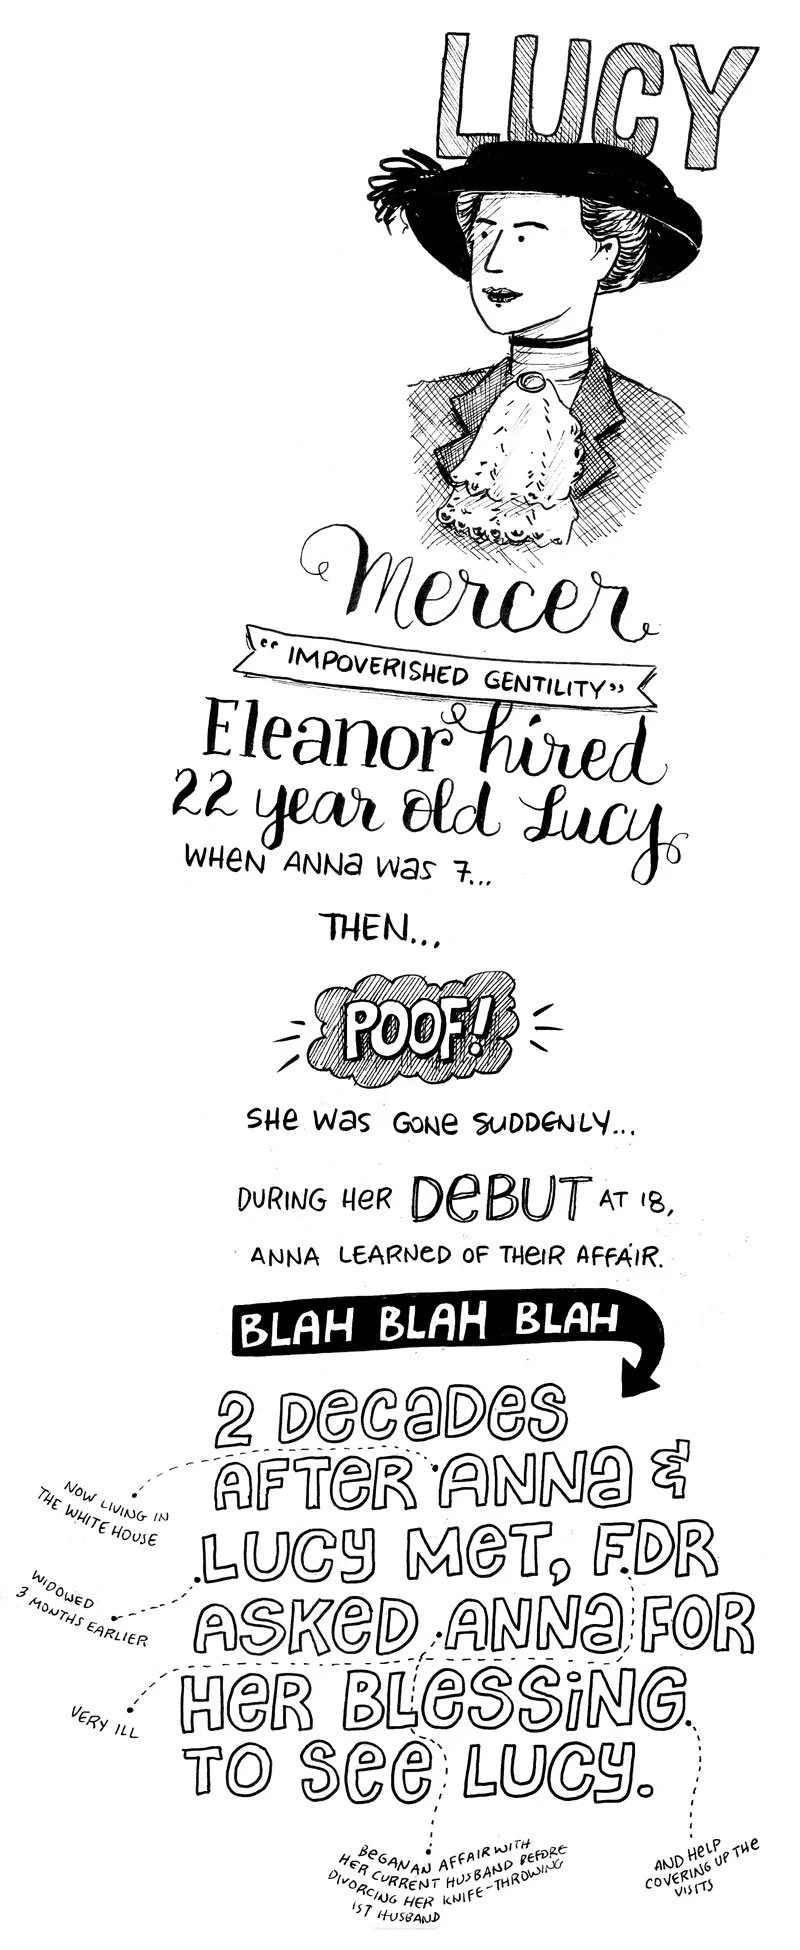 LUCY
Mercer
"IMPOVERISHED GENTILITY"
Eleanor hired
22 year old Lucy
WHEN ANNA WAS 7...
THEN...
POOF!
SHE WAS GONE SUDDENLY...
DURING HER DEBUT AT 18,
ANNA LEARNED OF THEIR AFFAIR.
BLAH BLAH BLAH
2 DECADES
AFTER ANNA &
LUCY MET, FDR
ASKED ANNA FOR
HER BLESSING
TO SEE LUCY.
NOW LIVING IN
THE WHITE HOUSE
WIDOWED
3 MONTHS EARLIER
VERY ILL
BEGAN AN AFFAIR WITH
HER CURRENT HUSBAND BEFORE
DIVORCING HER KNIFE-THROWING
1ST HUSBAND
AND HELP
COVERING UP THE
VISITS